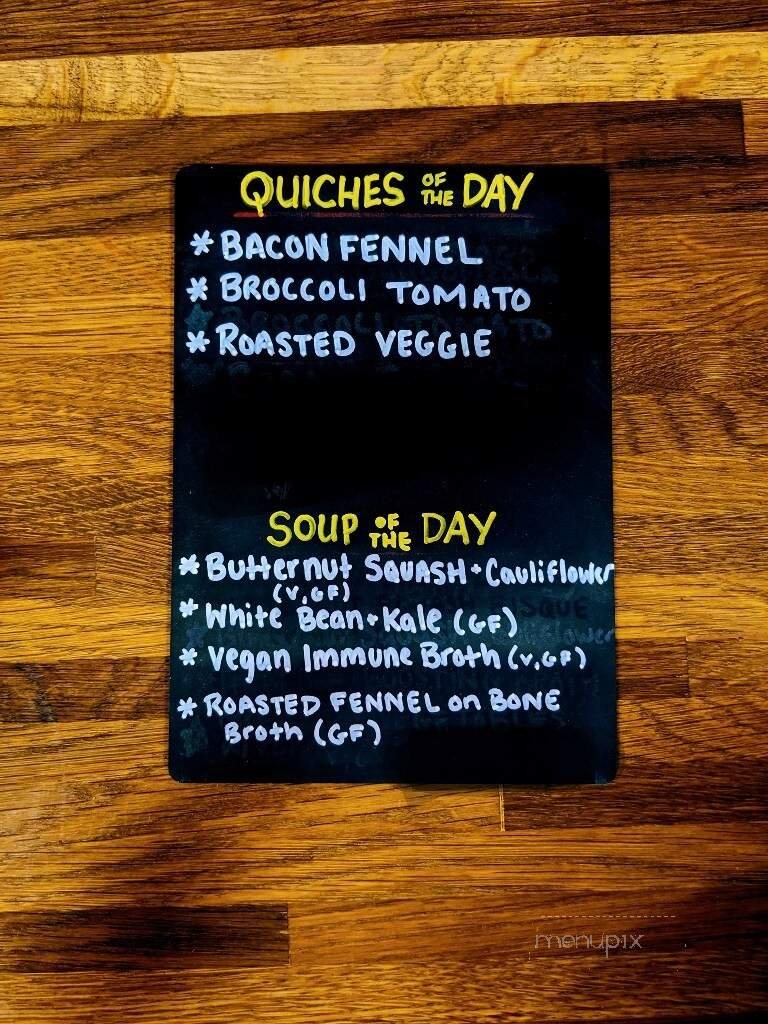 QUICHES OF THE DAY
* BACON FENNEL
* BROCCOLI TOMATO
* ROASTED VEGGIE
SOUP OF THE DAY
* Butternut SQUASH + Cauliflower
(V, GF)
* White Bean + Kale (GF)
* Vegan Immune Broth (V, GF)
* ROASTED FENNEL on BONE
Broth (GF)
menupix